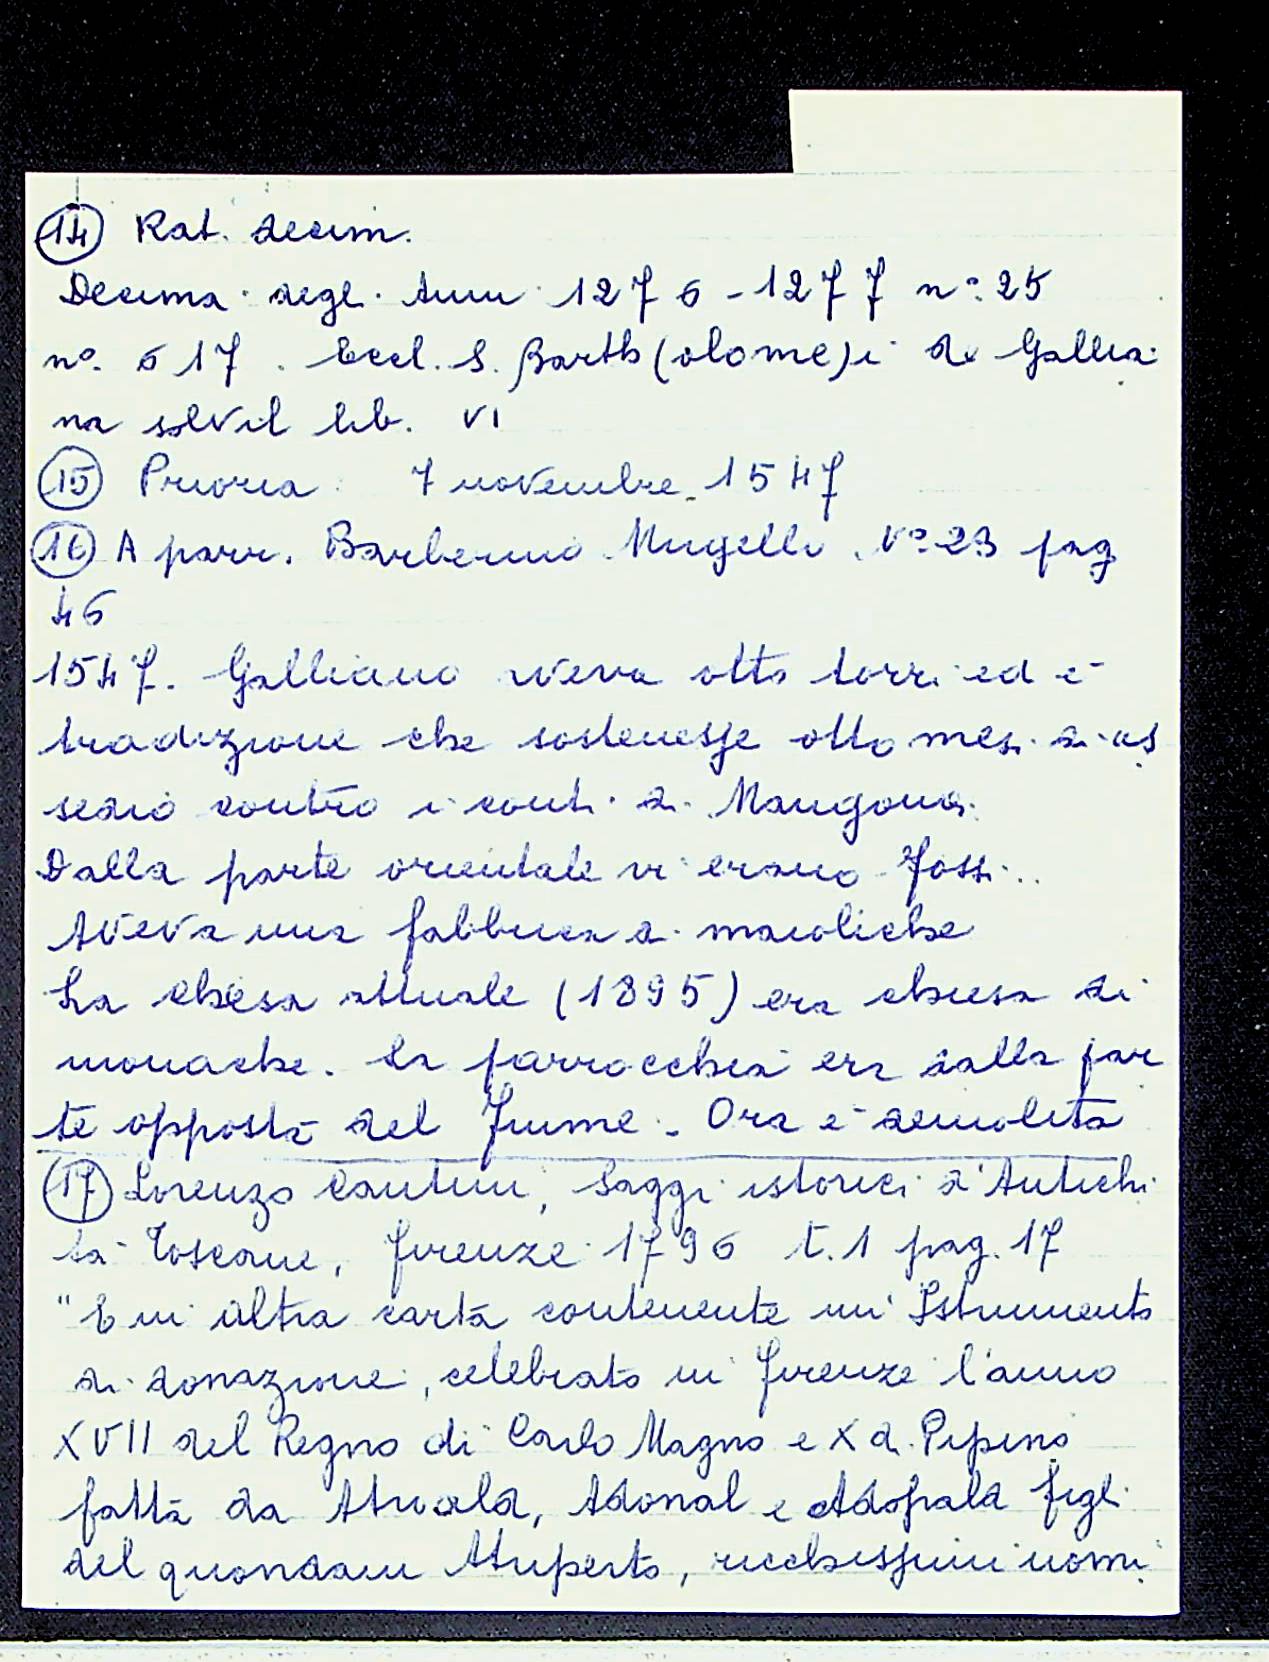 (14) Rat. decim.
Decima degli Anni 1276-1277 n° 25
n°. 617. Eccl. S. Barth(olome)i de Gallia
na solvit lib. VI
(15) Prioria 7 novembre 1547
(16) A parr. Barberino Mugello. N° 23 pag
46
1547. Galliano aveva otto torri ed è
tradizione che sostenesse otto mesi di as
sedio contro i conti di Mangona.
Dalla parte orientale vi erano fossi..
Aveva una fabbrica di maioliche
La chiesa attuale (1895) era chiesa di
monache. La parrocchia era dalla par
te opposta del fiume. Ora è demolita
(17) Lorenzo Cantini, Saggi istorici d'Antichi
tà Toscane, Firenze 1796 t.1 pag. 17
"E in altra carta contenente un Istrumento
di donazione, celebrato in Firenze l'anno
XVII del Regno di Carlo Magno e X di Pipino
fatta da Atroald, Adonal e Adopald figli
del quondam Atuperto, ricchissimi uomi